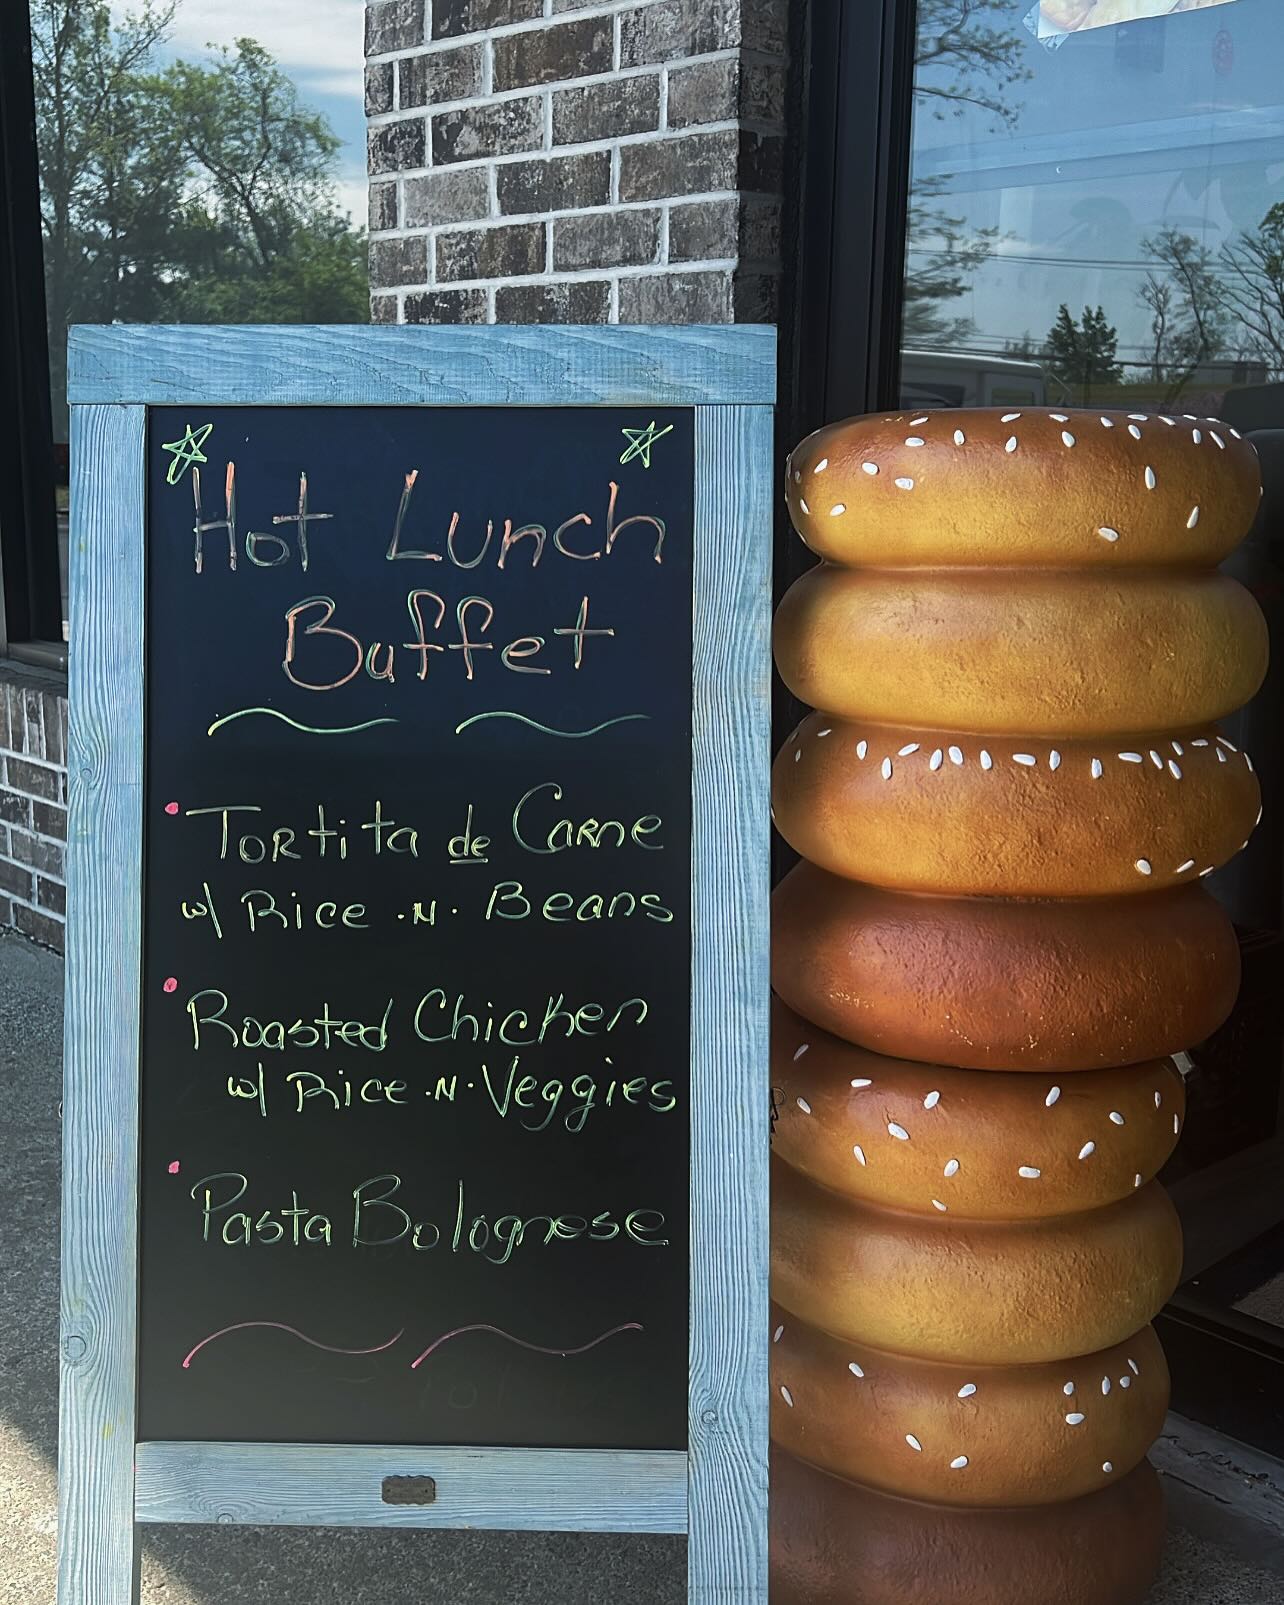 Hot Lunch
Buffet
Tortita de Carne
w/ Rice .N. Beans
Roasted Chicken
w/ Rice .N. Veggies
Pasta Bolognese